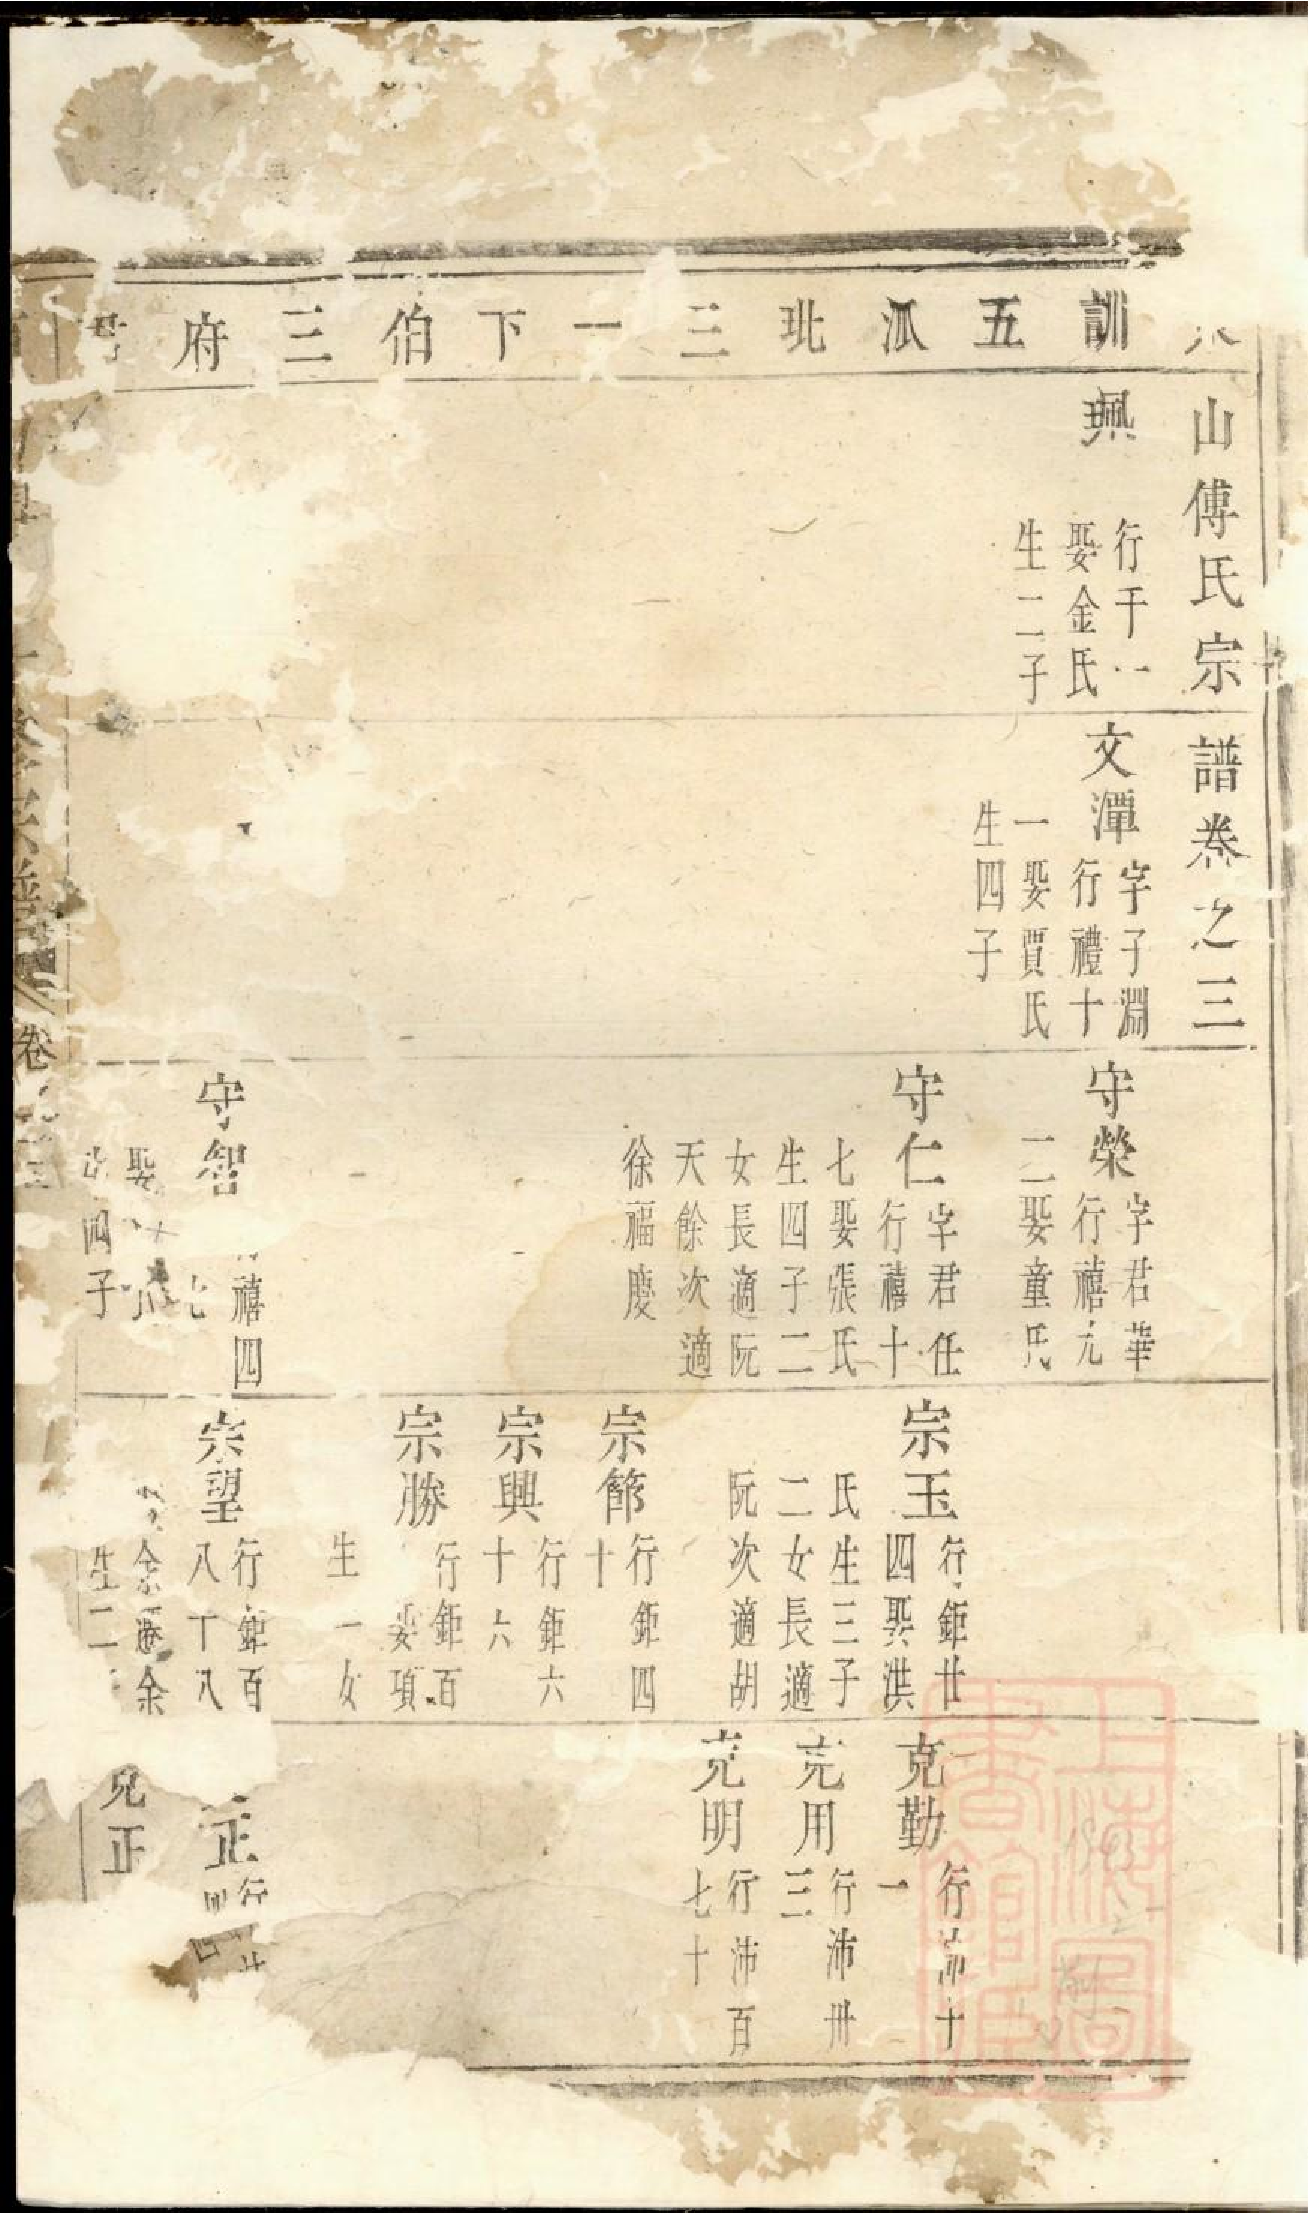 山傅氏宗譜卷之三
訓五派玭三一下伯三府君
興
行于一
娶金氏
生二子
文潭
字子淵
行禮十
一娶賈氏
生四子
守榮
字君華
行禧元
二娶童氏
守仁
字君任
行禧十
七娶張氏
生四子二
女長適阮
天餘次適
徐福慶
守智
禧四
七
娶
四子
宗玉
行鉅廿
四娶洪
氏生三子
二女長適
阮次適胡
宗節
行鉅四
十
宗興
行鉅六
十六
宗勝
行鉅百
娶項
生一女
宗望
行鉅百
八十八
余繼余
生二
克勤
行沛十
一
克用
行沛卅
三
克明
行沛百
七十
正
行
四
克正
卷之三